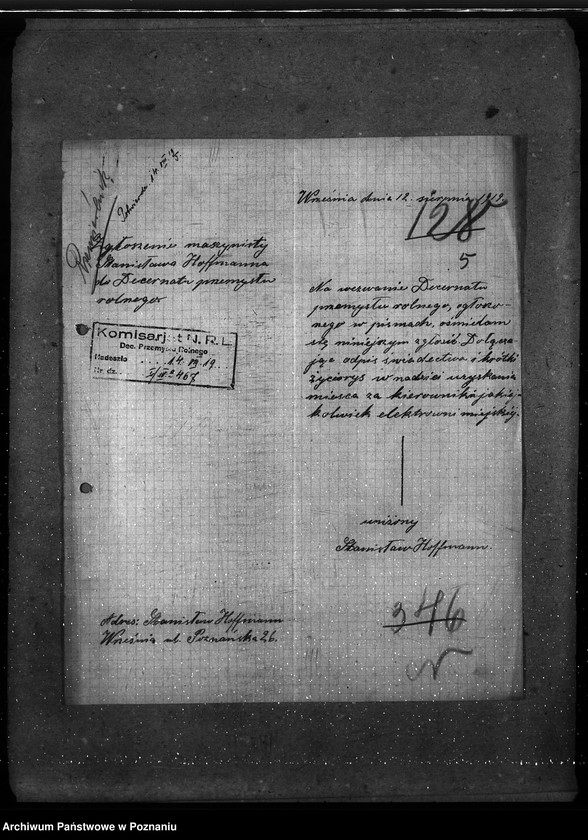 Września dnia 12. sierpnia 1919.
128
5
Zgłoszenie maszynisty
Stanisława Hoffmanna
do Decernatu przemysłu
rolnego
Komisarjat N. R. L.
Dec. Przemysłu Rolnego
Nadeszło 14. 19.
Nr. dz. 467
Na wezwanie Decernatu
przemysłu rolnego, ogłoszo-
nego w pismach, ośmielam
się niniejszym zgłosić. Dołącza-
jąc odpis świadectw i krótki
życiorys w nadziei uzyskania
miejsca za kierownika jakie-
kolwiek elektrowni miejskiej.
uniżony
Stanisław Hoffmann.
Adres: Stanisław Hoffmann
Września ul. Poznańska 26.
346
Archiwum Państwowe w Poznaniu